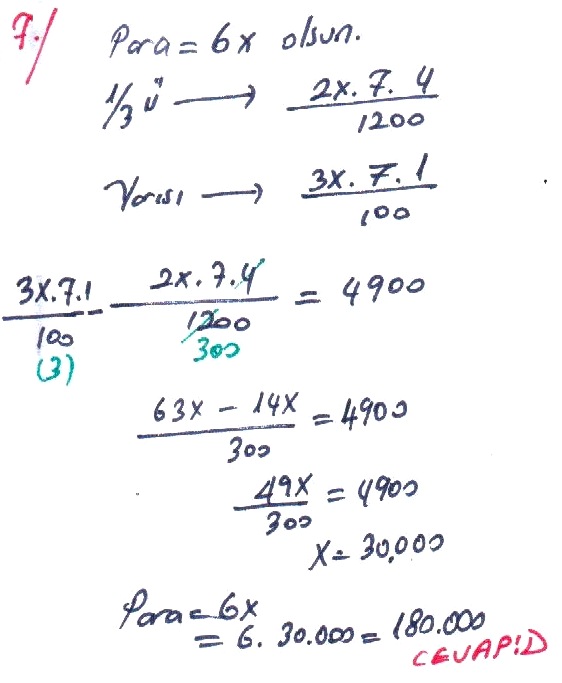 7./ Para = 6x olsun.
1/3 ü → 2x.7.4 / 1200
Yarısı → 3x.7.1 / 100
3x.7.1 / 100 (3) - 2x.7.4 / 1200 300 = 4900
63x - 14x / 300 = 4900
49x / 300 = 4900
x = 30,000
Para = 6x
= 6. 30.000 = 180.000
CEVAP:D